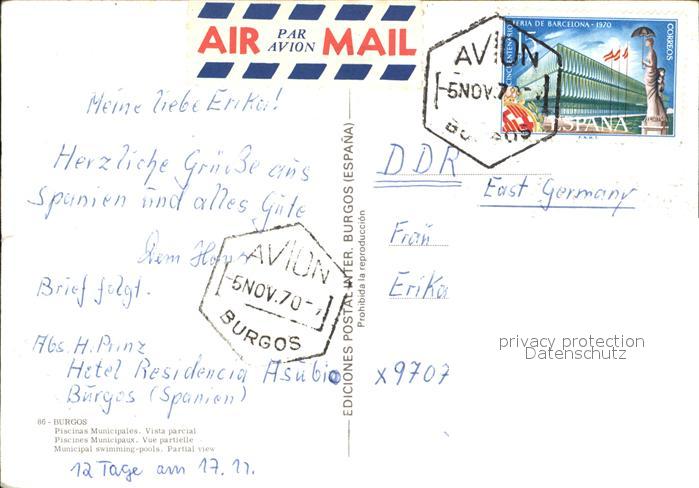 AIR PAR AVION MAIL
CINCUENTENARIO FERIA DE BARCELONA - 1970
CORREOS
ESPAÑA
AVION
-5NOV.70-
BURGOS
Meine liebe Erika!
Herzliche Grüße aus
Spanien und alles Gute
Dein Hans
Brief folgt.
AVION
-5NOV.70-
BURGOS
Abs. H. Prinz
Hotel Residencia Asubio
Burgos (Spanien)
86 - BURGOS
Piscinas Municipales. Vista parcial
Piscines Municipaux. Vue partielle
Municipal swimming-pools. Partial view
12 Tage am 17.11.
EDICIONES POSTAL INTER. BURGOS (ESPAÑA)
Prohibida la reproducción
DDR
East Germany
Frau
Erika
privacy protection
Datenschutz
x9707